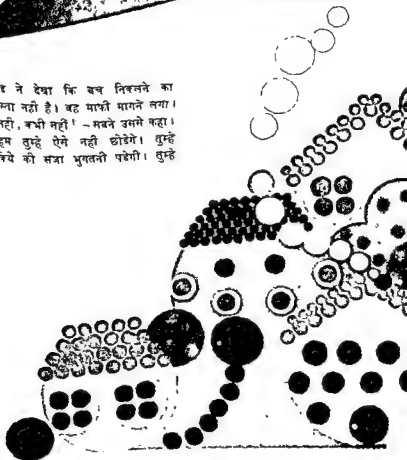 ने देखा कि बच निकलने का
नही है। वह माफी मागने लगा।
कभी नहीं! – सबने उससे कहा।
तुम्हे ऐसे नही छोडेगे। तुम्हे
किये की सजा भुगतनी पडेगी। तुम्हे